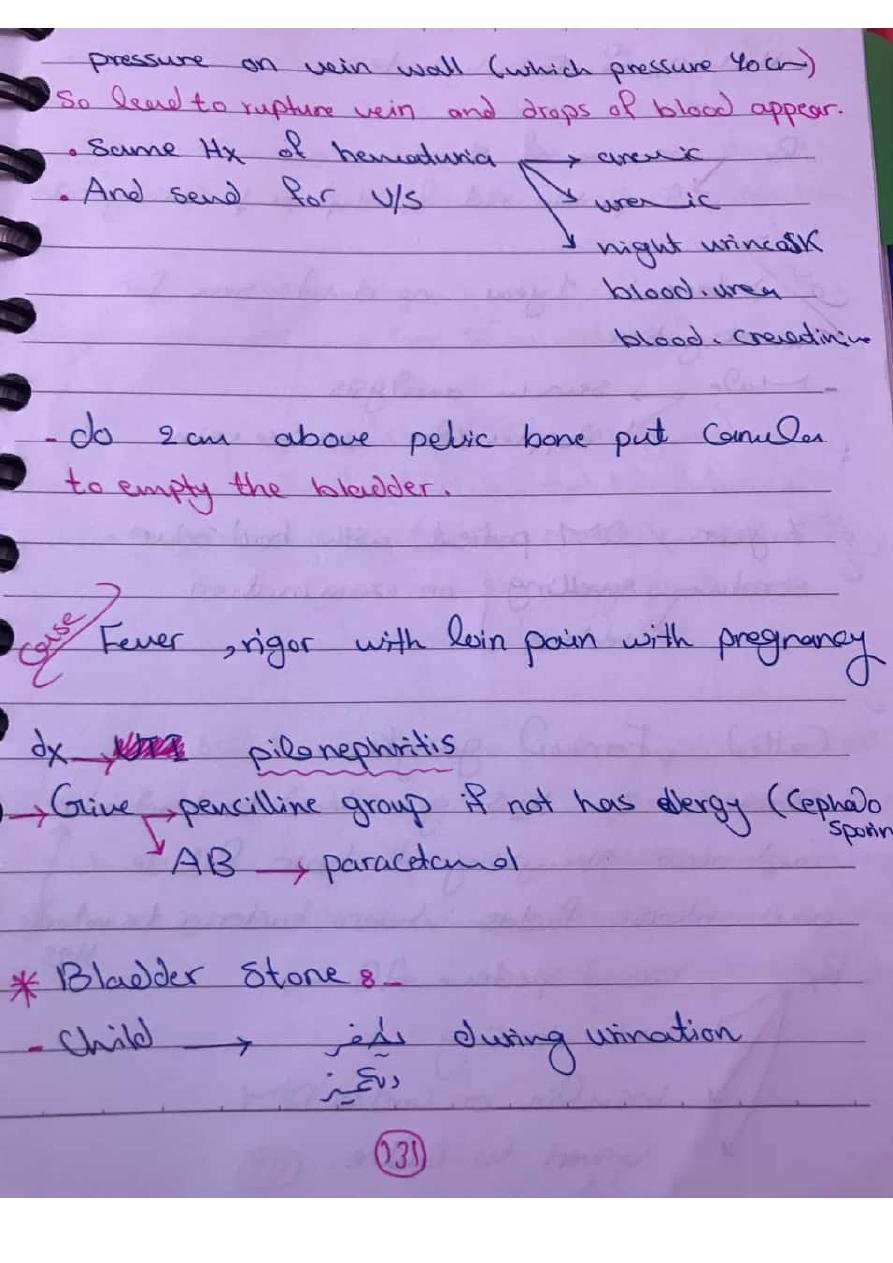 pressure on vein wall (which pressure 40cm)
So lead to rupture vein and drops of blood appear.
. Same Hx of hematuria → anemic
. And send for U/S → uremic
→ night urincask
blood. urea
blood. creadinine
- do 2cm above pelvic bone put Canula
to empty the bladder.
Case Fever , rigor with loin pain with pregnancy
dx → pilonephritis
→ Give → pencilline group if not has allergy (Cephalo
sporin
AB → paracetamol
* Bladder Stone :-
- Child → during urination
131